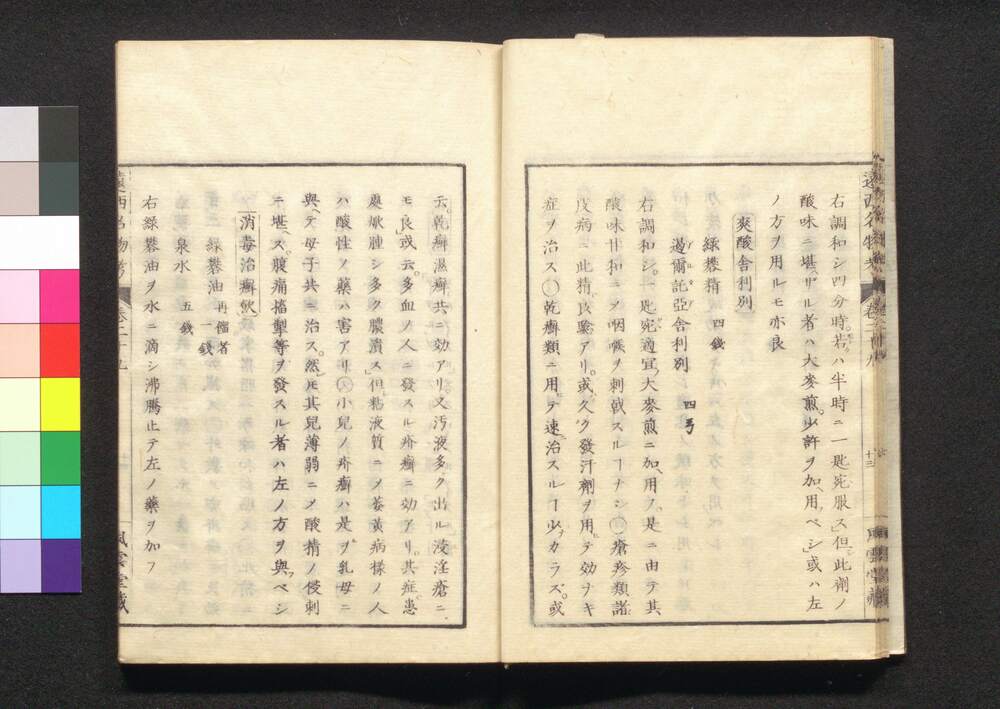 遠西名物考
卷二十九
十三
風雲堂藏
右調和シ四分時若ハ半時ニ一匙宛服ス但此劑ノ
酸味ニ堪ザル者ハ大麥煎少許ヲ加用ベシ或ハ左
ノ方ヲ用ルモ亦良
爽酸舎利別
綠礬精 四錢
葛爾託亞舎利別 四弓
右調和シ一匙宛適宜大麥煎ニ加用フ是ニ由テ其
酸味甘和ニメ咽喉ヲ刺戟スルヿナシ○瘡疹類諸
皮病ニ此精良驗アリ或久ク發汗劑ヲ用テ効ナキ
症ヲ治ス○乾癬類ニ用テ速治スルヿ少カラズ或
云乾癬濕癬共ニ効アリ又汚液多ク出ル浸淫瘡ニ
モ良或云多血ノ人ニ發スル疥癬ニ効アリ其症患
處焮腫シ多ク膿潰ス但粘液質ニメ萎黃病様ノ人
ハ酸性ノ藥ハ害アリ○小兒ノ疥癬ハ是ヲ乳母ニ
與テ母子共ニ治ス然ㇳモ其兒薄弱ニメ酸精ノ侵刺
ニ堪ズ腹痛搐掣等ヲ發スル者ハ左ノ方ヲ與フベシ
消毒治癬飲
綠礬油 再餾者 一錢
泉水 五錢
右綠礬油ヲ水ニ滴シ沸騰止テ左ノ藥ヲ加フ
遠西名物考
卷二十九
風雲堂藏